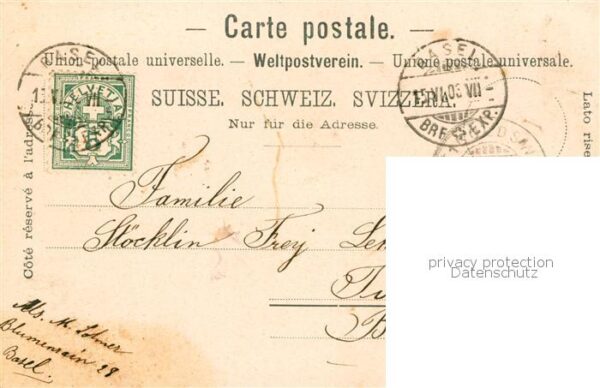 — Carte postale. —
Union postale universelle. — Weltpostverein. — Unione postale universale.
SUISSE. SCHWEIZ. SVIZZERA.
Nur für die Adresse.
Côté réservé à l'adresse.
Lato rise
BASEL
HELVETIA
5
BASEL
15.VI.03 VII
BRF. EXP.
Familie
Stöcklin Frey
privacy protection
Datenschutz
Abs. M.
Blumenrain 28
Basel.